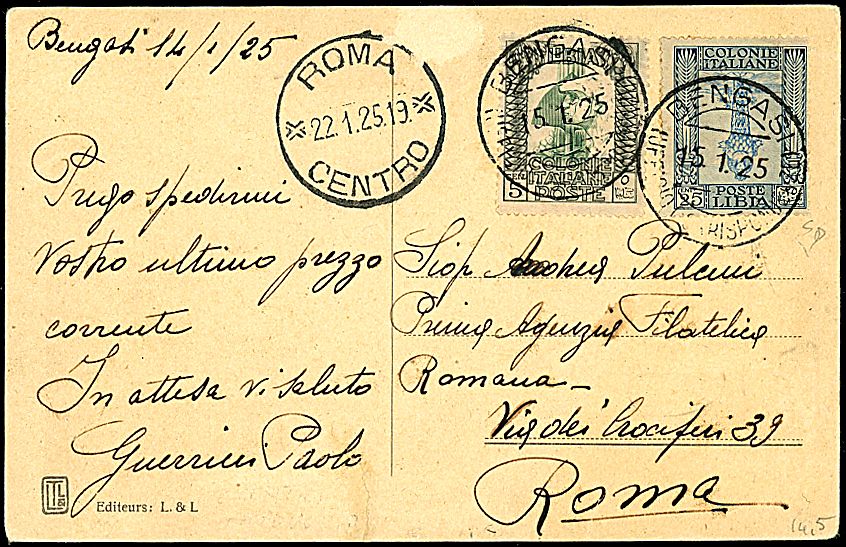 Bengasi 14/1/25
Prego spedirmi
Vostro ultimo prezzo
corrente
In attesa vi saluto
Guerrieri Paolo
LL
Editeurs: L. & L
ROMA
22.1.25.19.
CENTRO
BENGASI
15.1.25
COLONIE
ITALIANE
POSTE
5
BENGASI
15.1.25
COLONIE
ITALIANE
POSTE
LIBIA
25
Sigr Andrea Pulcini
Prima Agenzia Filatelica
Romana -
Via dei Crociferi 39
Roma